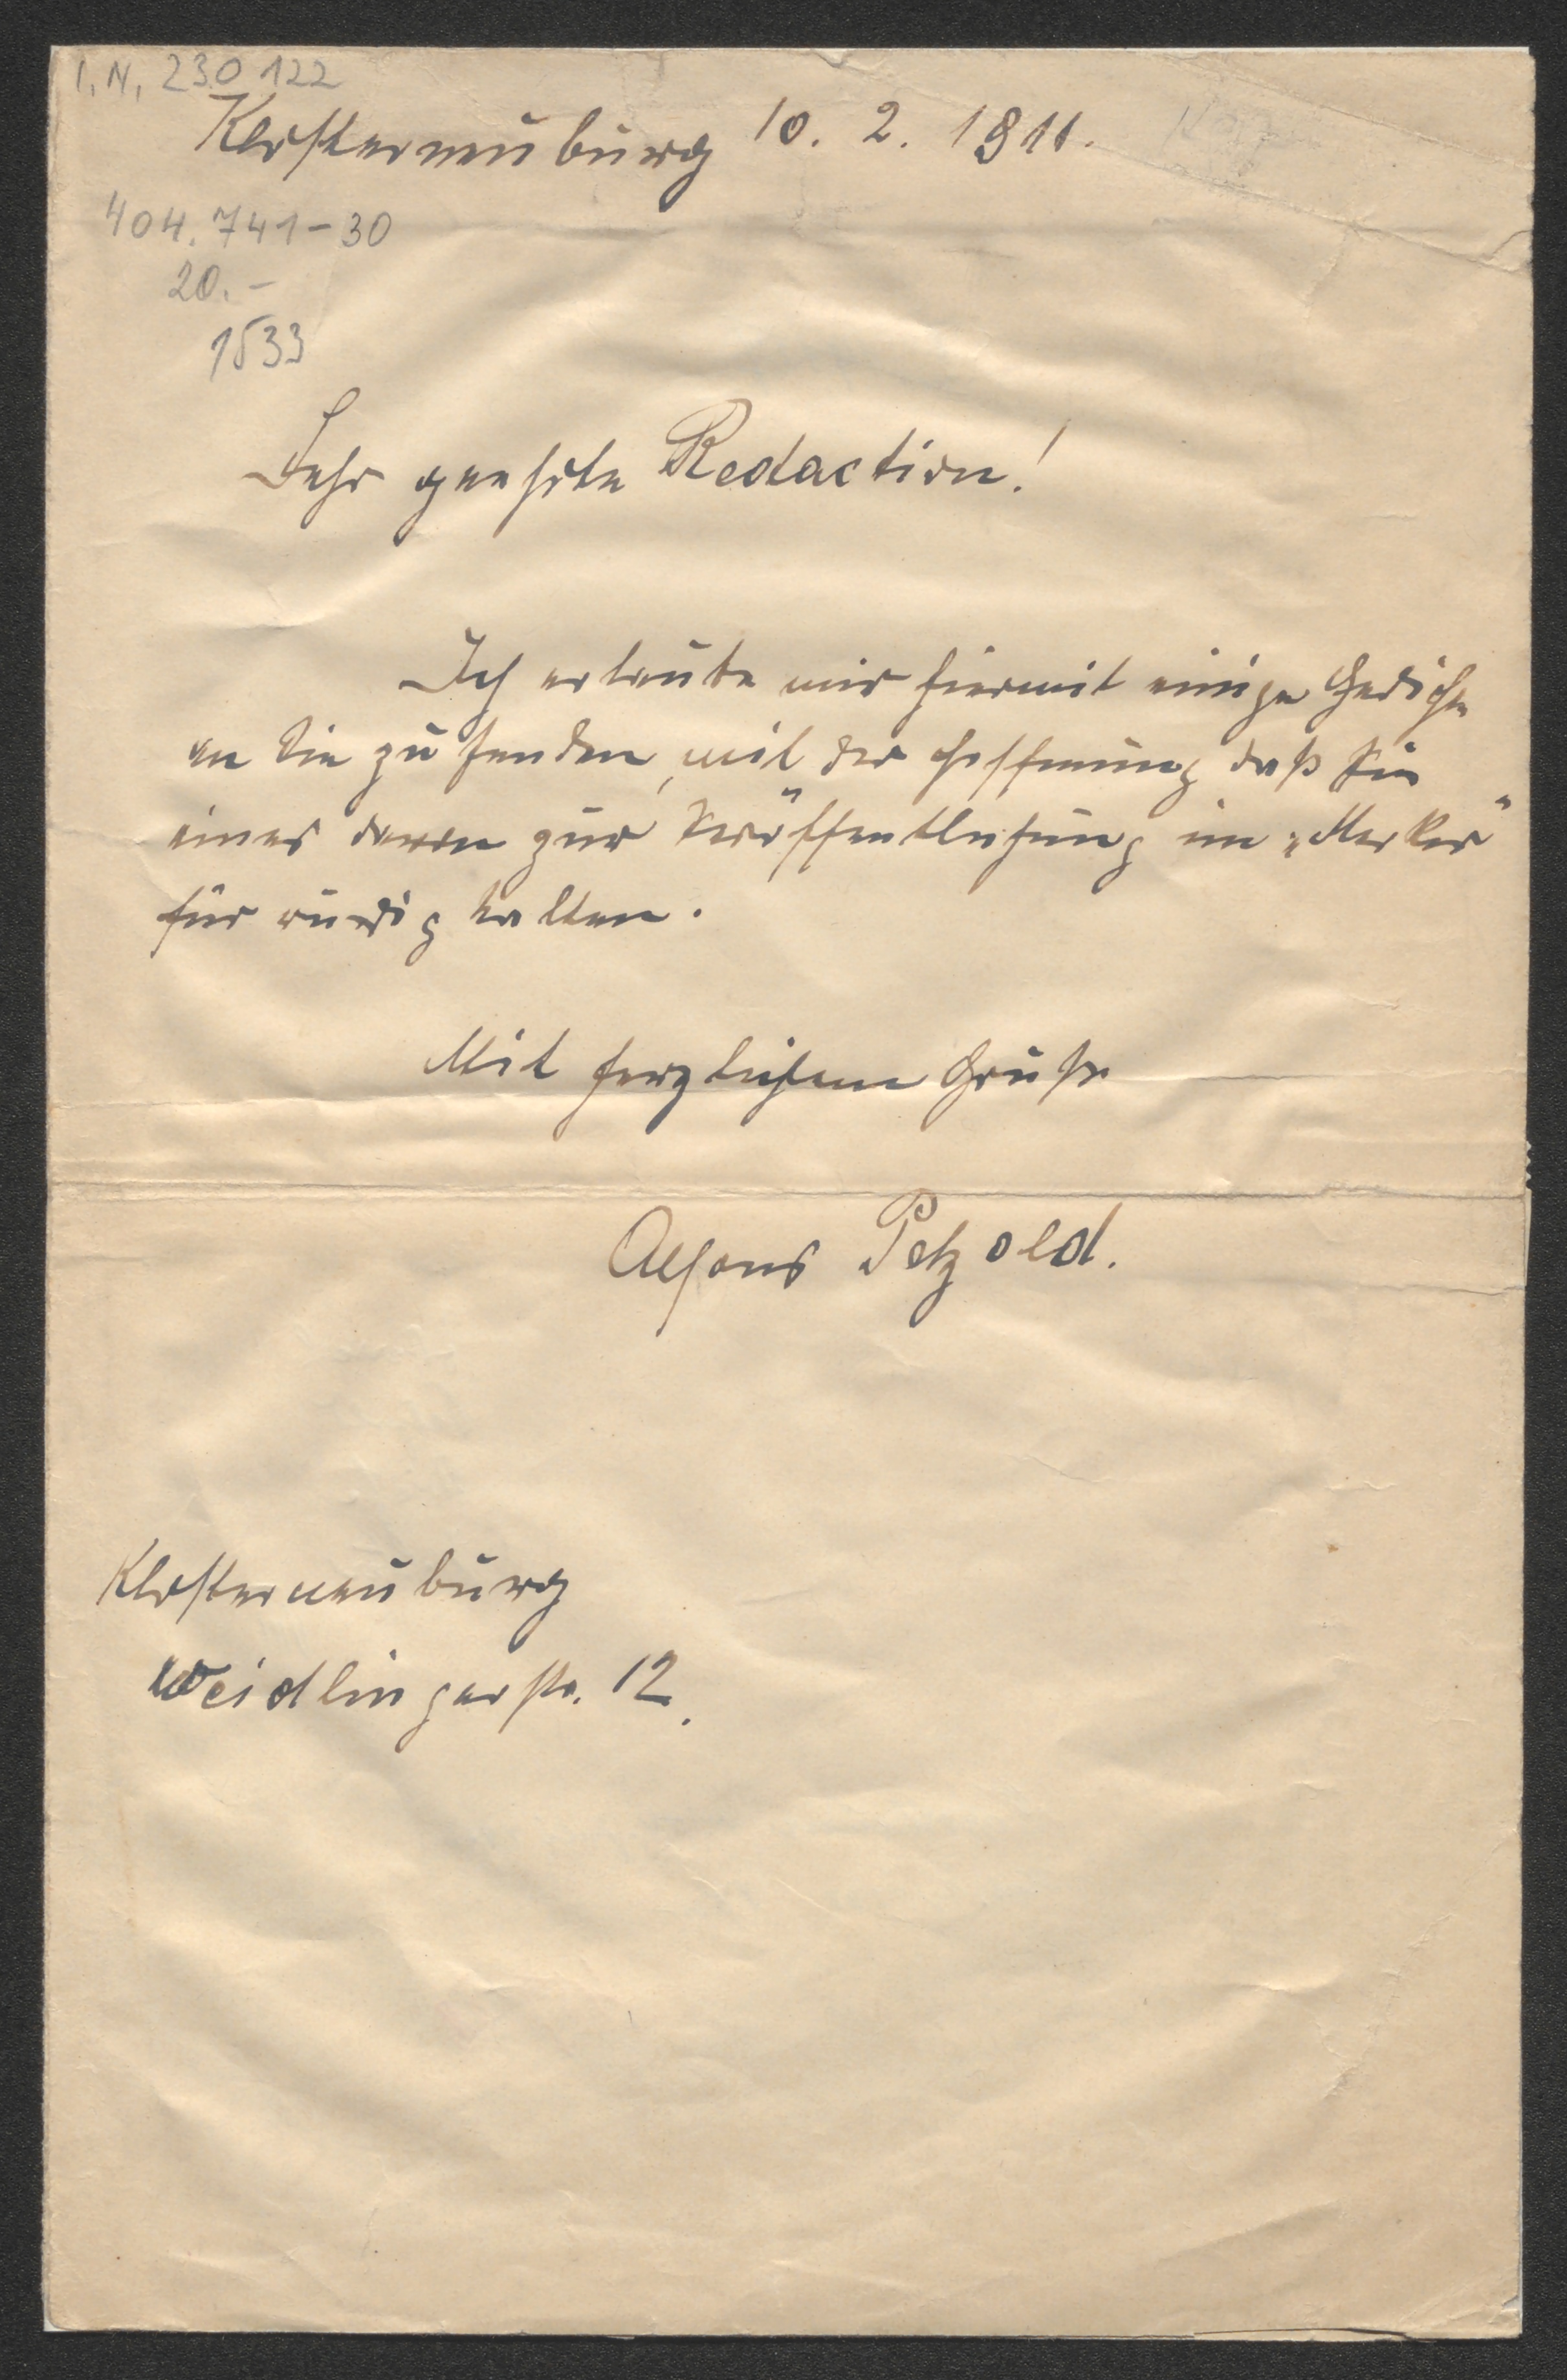 I. N. 230 122
Klosterneuburg 10. 2. 1911.
404.741-30
20.-
1533
Sehr geehrte Redaction!
Ich erlaube mir hiermit einige Gedichte
an Sie zu senden, mit der Hoffnung daß Sie
eines davon zur Veröffentlichung im „Merker"
für würdig halten.
Mit herzlichem Gruße
Alfons Petzold.
Klosterneuburg
Weidlingerstr. 12.